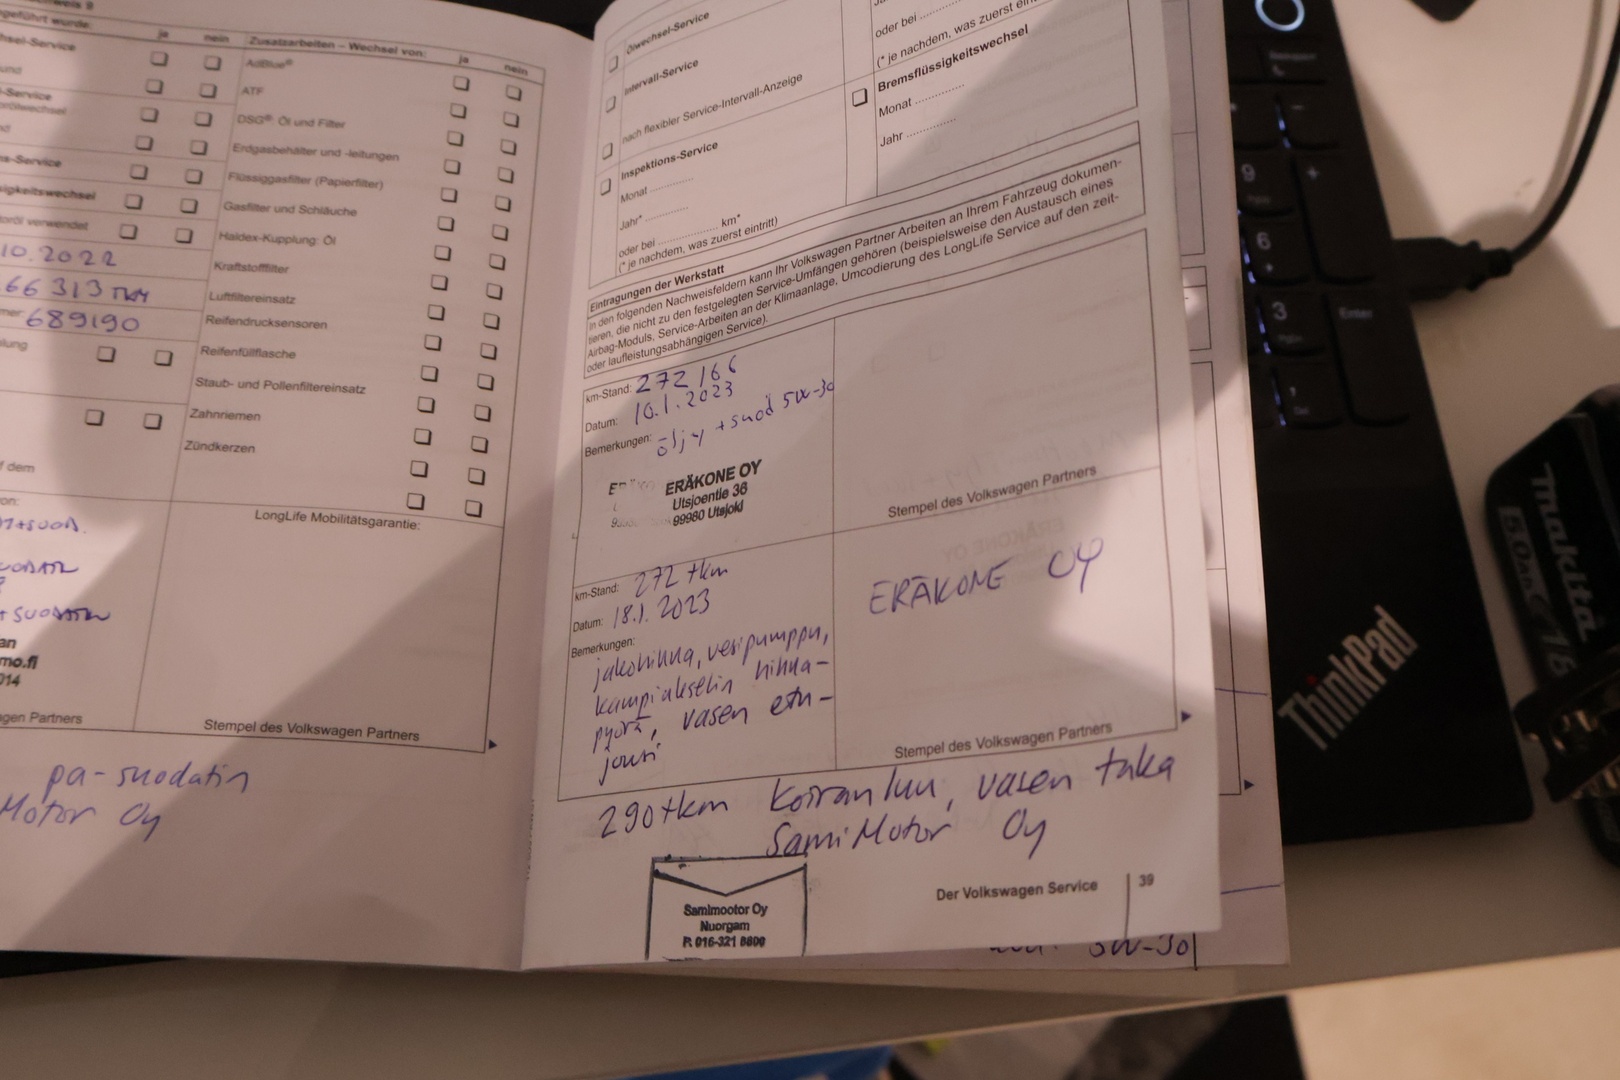 ja nein
Zusatzarbeiten – Wechsel von: ja nein
AdBlue®
ATF
DSG®: Öl und Filter
Erdgasbehälter und -leitungen
Flüssiggasfilter (Papierfilter)
Gasfilter und Schläuche
Haldex-Kupplung: Öl
Kraftstofffilter
Luftfiltereinsatz
Reifendrucksensoren
Reifenfüllflasche
Staub- und Pollenfiltereinsatz
Zahnriemen
Zündkerzen
10.2022
66 313 TKM
689190
LongLife Mobilitätsgarantie:
mo.fi
014
Stempel des Volkswagen Partners
pa-suodatin
Motor Oy
Ölwechsel-Service
Intervall-Service
nach flexibler Service-Intervall-Anzeige
Inspektions-Service
Monat ..............
Jahr* ..............
oder bei .................... km*
(* je nachdem, was zuerst eintritt)
oder bei
(* je nachdem, was zuerst
Bremsflüssigkeitswechsel
Monat ................
Jahr ................
Eintragungen der Werkstatt
In den folgenden Nachweisfeldern kann Ihr Volkswagen Partner Arbeiten an Ihrem Fahrzeug dokumen-
tieren, die nicht zu den festgelegten Service-Umfängen gehören (beispielsweise den Austausch eines
Airbag-Moduls, Service-Arbeiten an der Klimaanlage, Umcodierung des LongLife Service auf den zeit-
oder laufleistungsabhängigen Service).
km-Stand: 272 166
Datum: 10.1.2023
Bemerkungen: öljy + suod 5W-30
ERÄKONE OY
Utsjoentie 36
99980 Utsjoki
Stempel des Volkswagen Partners
km-Stand: 272 tkm
Datum: 18.1.2023
Bemerkungen:
jakohihna, vesipumppu,
kampiakselin hihna-
pyörä, vasen etu-
jousi
ERÄKONE OY
Stempel des Volkswagen Partners
290 tkm Koiranluu, vasen taka
SamiMotor Oy
Samimootor Oy
Nuorgam
P. 016-321 8800
Der Volkswagen Service 39
5W-30
9
+
6
3
Enter
1
ThinkPad
makita
5.0Ah